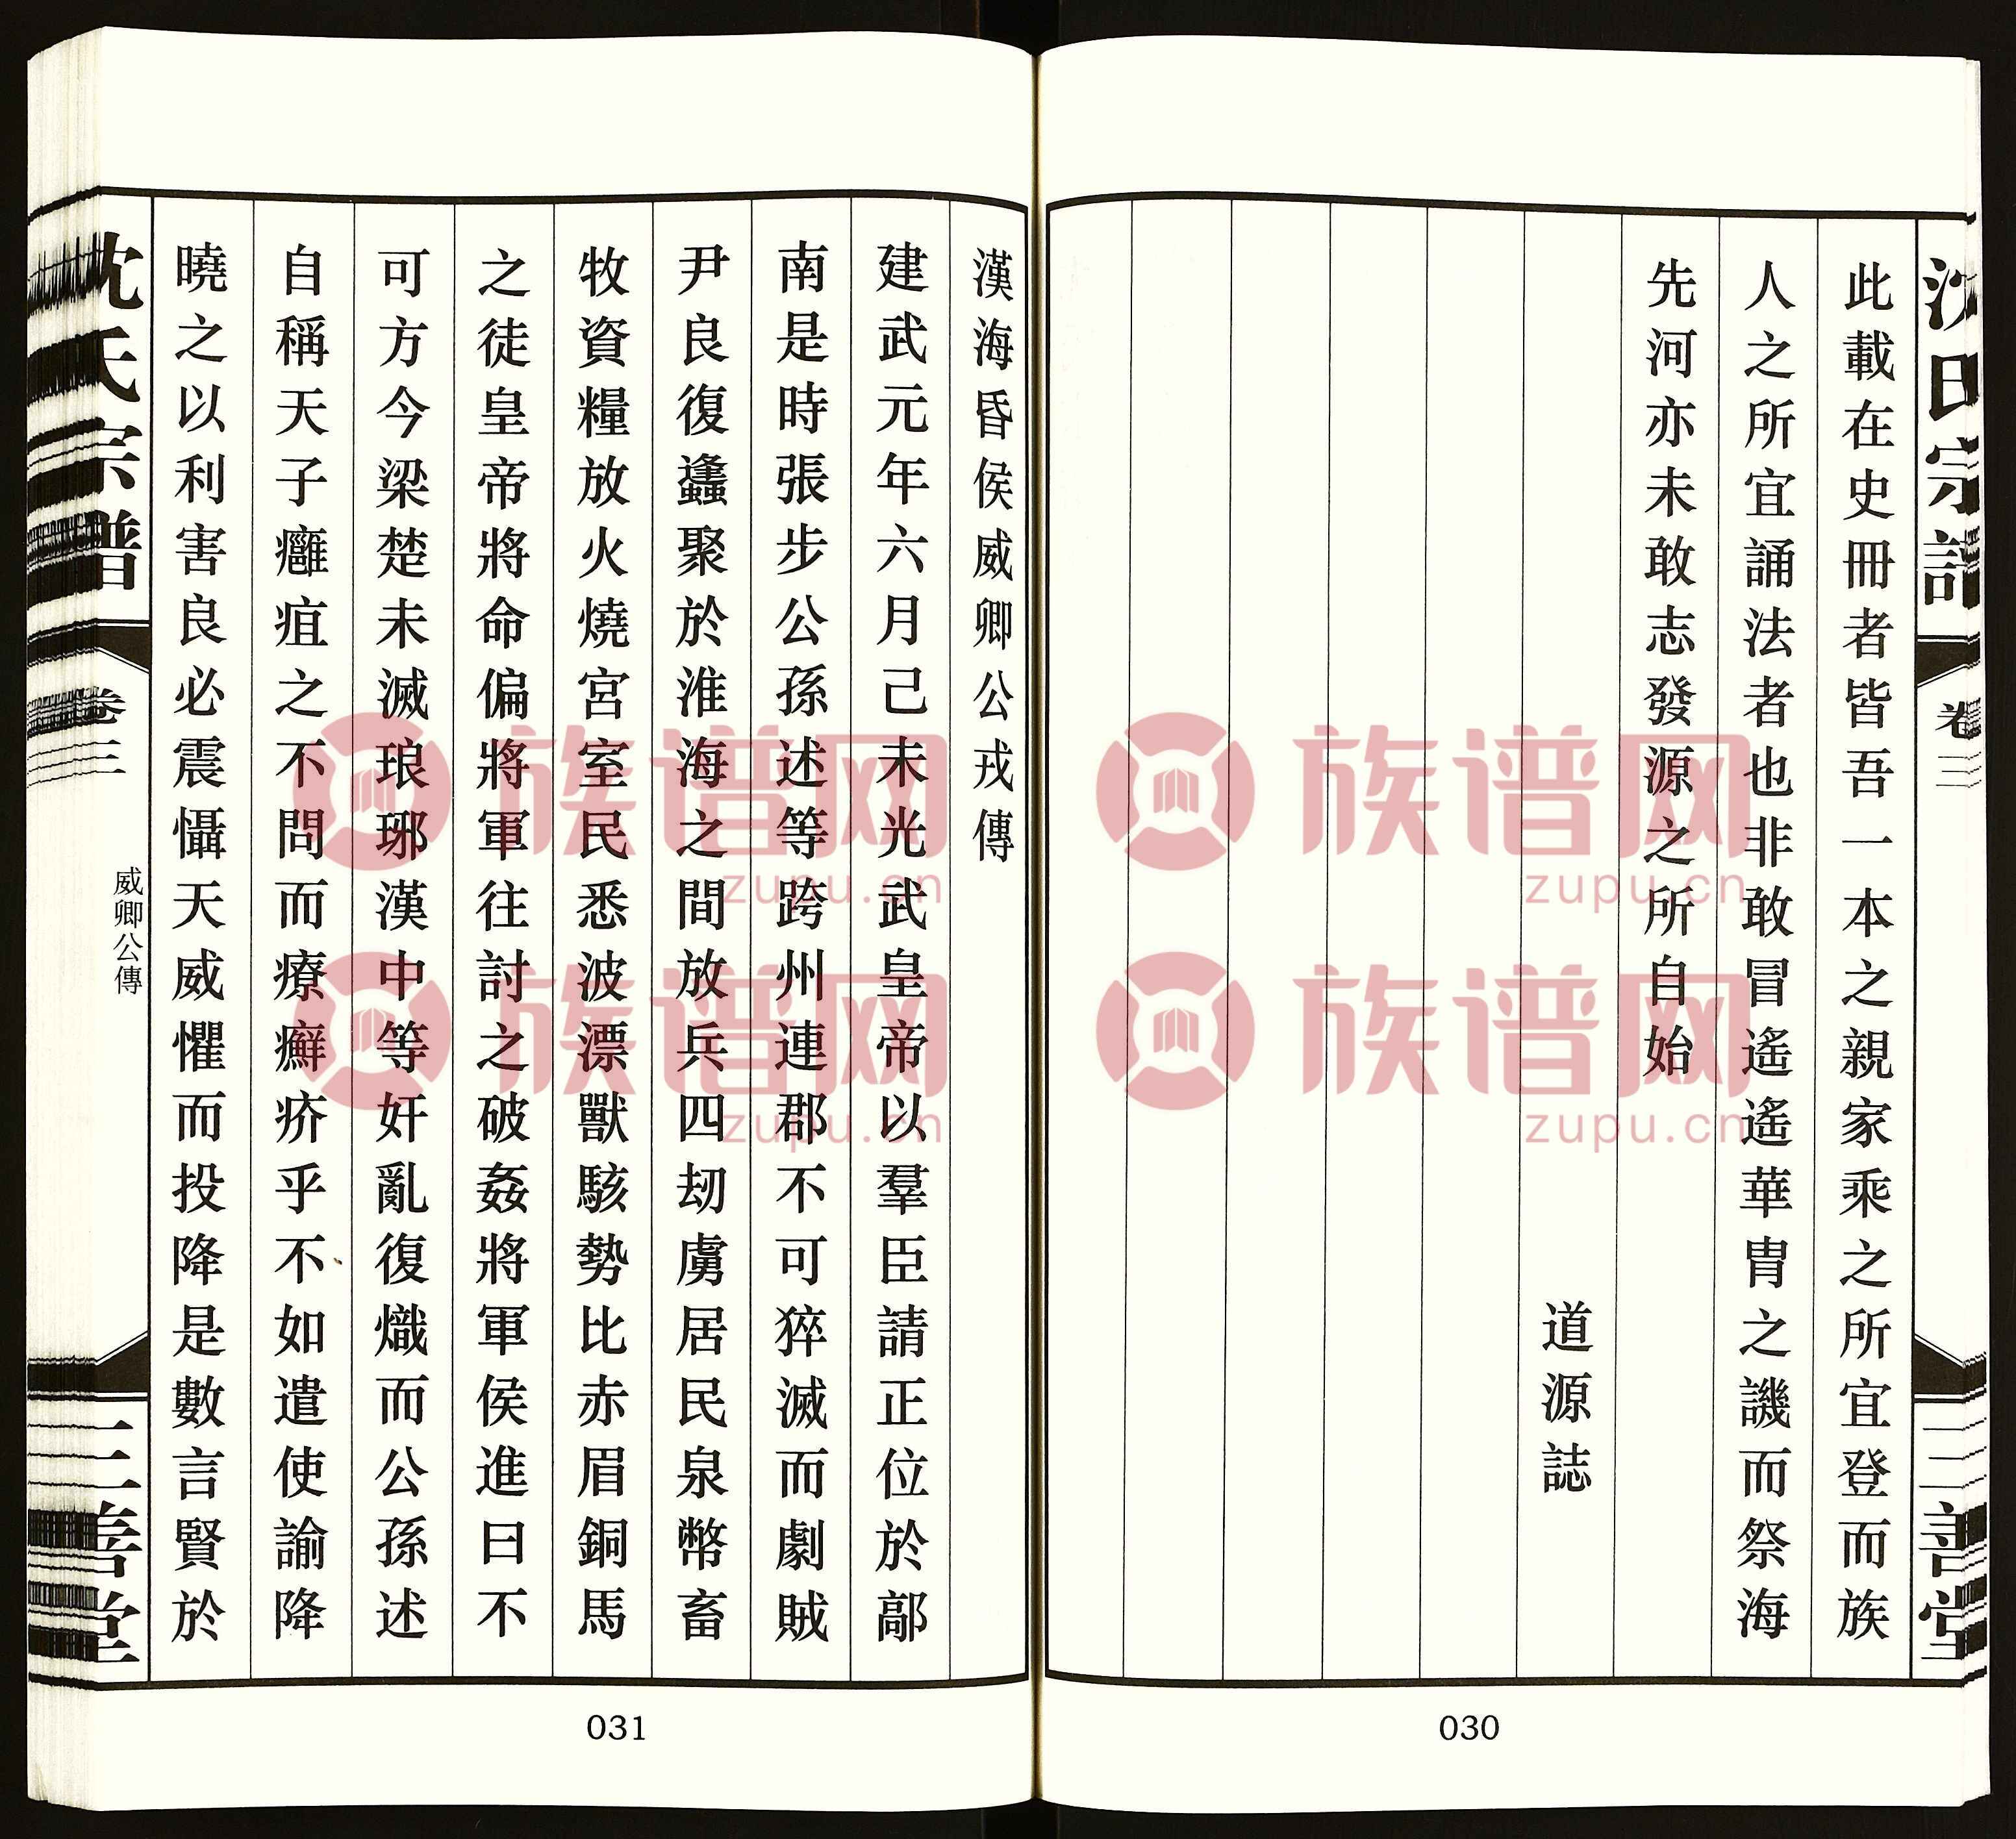 沈氏宗譜
卷三
三善堂
此載在史冊者皆吾一本之親家乘之所宜登而族
人之所宜誦法者也非敢冒遙遙華胄之譏而祭海
先河亦未敢志發源之所自始
道源誌
030
漢海昏侯威卿公戎傳
建武元年六月己未光武皇帝以羣臣請正位於鄗
南是時張步公孫述等跨州連郡不可猝滅而劇賊
尹良復蠭聚於淮海之間放兵四刼虜居民泉幣畜
牧資糧放火燒宮室民悉波漂獸駭勢比赤眉銅馬
之徒皇帝將命偏將軍往討之破姦將軍侯進曰不
可方今梁楚未滅琅琊漢中等奸亂復熾而公孫述
自稱天子癰疽之不問而療癬疥乎不如遣使諭降
曉之以利害良必震懾天威懼而投降是數言賢於
沈氏宗譜
卷三
威卿公傳
三善堂
031
族谱网
zupu.cn
族谱网
zupu.cn
族谱网
zupu.cn
族谱网
zupu.cn